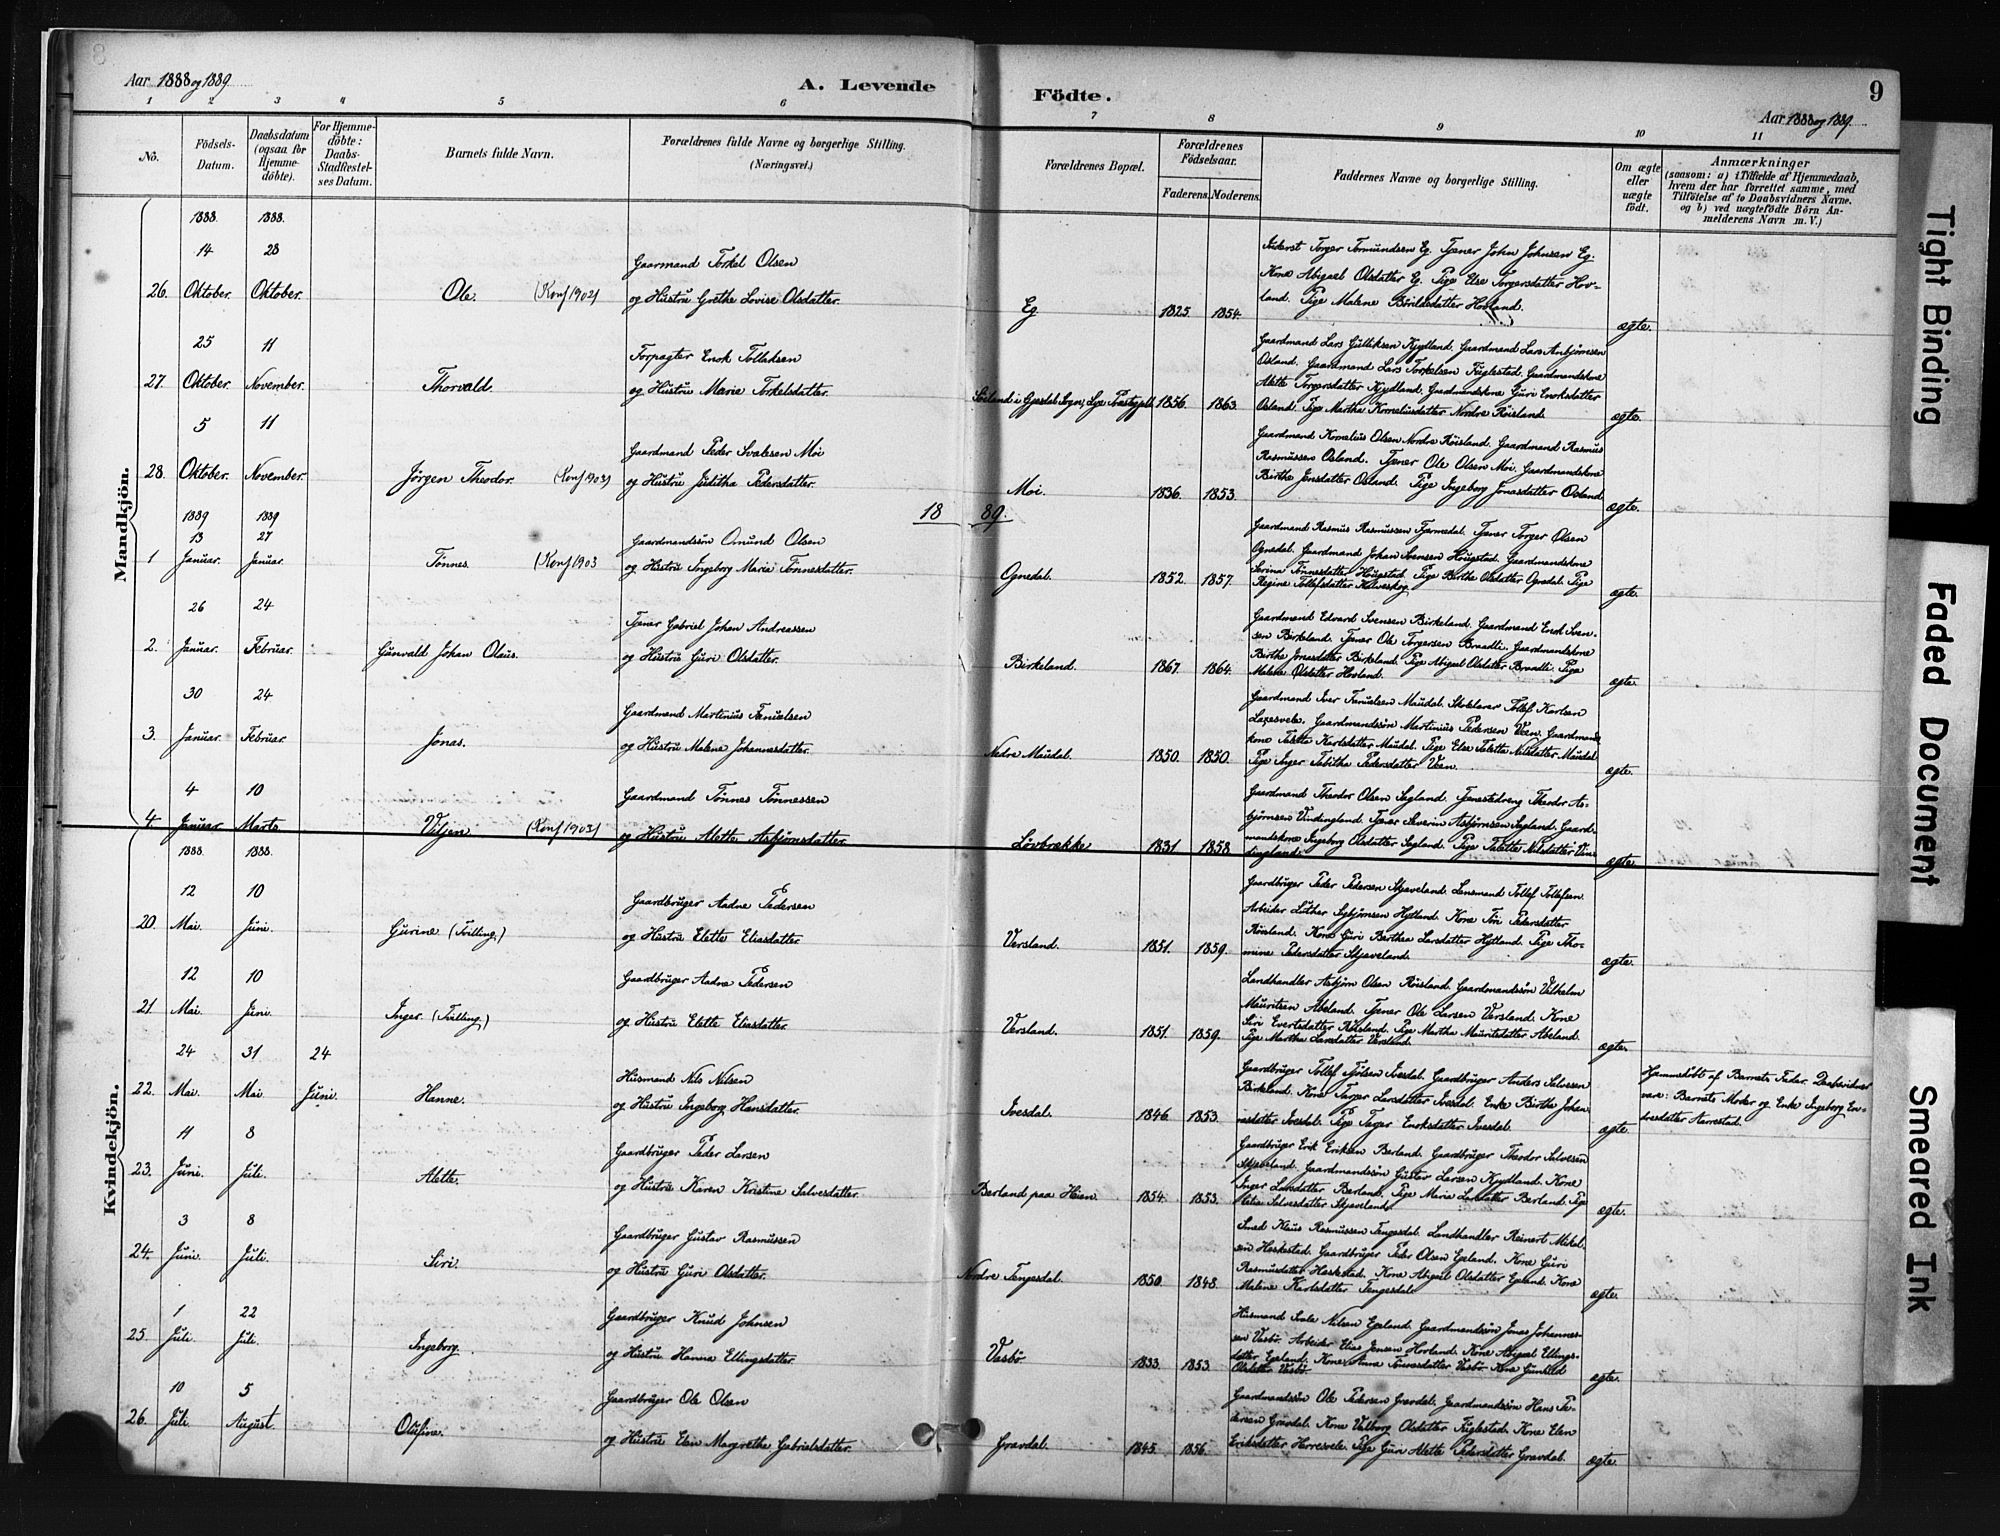 8
Aar 1888 og 1889
A. Levende
Födte.
9
Aar 1888 og 1889.
1 2 3 4 5 6 7 8 9 10 11
No.
Födsels-Datum.
Daabsdatum (ogsaa for Hjemmedöbte).
For Hjemmedöbte: Daabs-Stadfæstelses Datum.
Barnets fulde Navn.
Forældrenes fulde Navne og borgerlige Stilling. (Næringsvei.)
Forældrenes Bopæl.
Forældrenes Födselsaar.
Faderens. Moderens.
Faddernes Navne og borgerlige Stilling.
Om ægte eller uægte födt.
Anmærkninger
(saasom: a) i Tilfælde af Hjemmedaab, hvem der har forrettet samme, med Tilföielse af to Daabsvidners Navne, og b) ved uægtefödte Börn Anmelderens Navn m. V.)
Mandkjön.
1888. 1888.
14 28
26. Oktober. Oktober. Ole. (Konf 1902)
Gaarmand Torkel Olsen
og Hustru Grethe Lovise Olsdatter.
Eg 1825. 1854.
Torger Tormundsen Eg. Tjener John Johnsen Eg.
Kone Abigael Olsdatter Eg. Pige Else Torgersdatter Hov-
land. Pige Malene Bårildsdatter Hovland.
ægte.
25 11
27. Oktober. November. Thorvald.
Forpagter Enok Tollaksen
og Hustru Maria Torkelsdatter.
i Gjesdal Sogn, Lye Præstegjeld 1856. 1863.
Gaardmand Lars Gulliksen Kydland. Gaardmand Lars Asbjørnsen
Osland. Gaardmand Lars Torkelsen Fuglestad. Gaardmandskone
Alette Torgersdatter Kydland. Gaardmandskone Guri Enoksdatter
Osland. Pige Martha Korneliusdatter Nordre Røisland.
ægte.
5 11
28. Oktober. November. Jørgen Theodor. (Konf 1903)
Gaardmand Peder Svalesen Moi
og Hustru Juditha Pedersdatter.
Moi. 1836. 1853.
Gaardmand Kornelius Olsen Nordre Røisland. Gaardmand Rasmus
Rasmussen Osland. Tjener Ole Olsen Moi. Gaardmandskone
Birthe Jonsdatter Osland. Pige Ingeborg Jonasdatter Osland
ægte.
18 89.
1889 1889
13 27
1 Januar. Januar. Tønnes. (Konf 1903
Gaardmandsøn Omund Olsen
og Hustru Ingeborg Maria Tønnesdatter.
Ognedal. 1852. 1857.
Gaardmand Rasmus Rasmussen Tjørnedal. Tjener Torger Olsen
Ognedal. Gaardmand Johan Svensen Hougstad. Gaardmandskone
Serina Tønnesdatter Hougstad. Pige Birthe Olsdatter Ognedal. Pige
Regine Tollefsdatter
ægte.
26 24
2. Januar. Februar. Gunvald Johan Olaus.
Tjener Gabriel Johan Andreassen
og Hustru Guri Olsdatter.
Birkeland. 1867. 1864.
Gaardmand Edvard Svensen Birkeland. Gaardmand Enok Sven-
sen Birkeland. Tjener Ole Torgersen Braadli. Gaardmandskone
Birthe Jonasdatter Birkeland. Pige Abigael Olsdatter Braadli. Pige
Malene Olsdatter Hovland.
ægte.
30 24
3. Januar. Februar. Jonas.
Gaardmand Martinius Tønnelsen
og Hustru Malene Johannesdatter.
Nedre Maudal. 1850. 1850.
Gaardmand Iver Maudal. Skolelærer Tollef Karlsen
Laxesvele. Gaardmandssøn Martinius Pedersen Veen. Gaardmands-
kone Taletta Karlsdatter Maudal. Pige Else Taletta Nilsdatter Maudal
Pige Inger Tabitha Pedersdatter Veen.
ægte.
4 10
4. Januar Marts. Viljen (Konf 1903)
Gaardmand Tønnes Tønnessen
og Hustru Alette Asbjørnsdatter.
Løvbrække 1831. 1858
Gaardmand Theodor Olsen Segland. Tjenestedreng Theodor As-
bjørnsen Vindingland. Tjener Severin Asbjørnsen Segland. Gaard-
mandskone Ingeborg Olsdatter Segland. Pige Talette Nilsdatter Vin-
dingland.
ægte.
Kvindekjön.
1888. 1888.
12 10
20. Mai. Juni. Gurine (Tvilling.)
Gaardbruger Aadne Pedersen
og Hustru Elette Eliasdatter
Versland. 1851. 1859.
Gaardbruger Peder Pedersen Skjæveland. Lensmand Tollef Tollefsen.
Arbeider Luther Sybjørnsen Hytland. Kone Siri Pedersdatter
Røisland. Kone Guri Berthea Larsdatter Hytland. Pige Tho-
mine Pedersdatter Skjæveland.
ægte.
12 10
21. Mai. Juni. Inger (Tvilling.)
Gaardbruger Aadne Pedersen
og Hustru Elette Eliasdatter
Versland. 1851. 1859.
Landhandler Asbjørn Olsen Røisland. Gaardmandssøn Vilhelm
Mauritsen Abeland. Tjener Ole Larsen Versland. Kone
Siri Evertsdatter Røisland. Pige Martha Mauritsdatter Abeland.
Pige Martha Larsdatter Versland.
ægte.
24 31 24
22. Mai. Mai Juni. Hanne.
Husmand Nils Nilsen
og Hustru Ingeborg Hansdatter.
Ivesdal. 1846. 1853.
Gaardbruger Tollef Ivesdal. Gaardbruger Anders Salvesen
Birkeland. Kone Larsdatter Ivesdal. Enke Birthe Johan-
nesdatter Ivesdal. Pige Enoksdatter Ivesdal.
ægte.
Hjemmedøbt af Barnets Fader. Daabsvidner
vare: Barnets Moder og Enke Ingeborg En-
dresdatter Harrestad.
11 8
23. Juni. Juli. Alette.
Gaardbruger Peder Larsen
og Hustru Karen Kristine Salvesdatter.
Berland paa Heien. 1854. 1853.
Gaardbruger Erik Eriksen Berland. Gaardbruger Theodor Salvesen
Skjæveland. Gaardmandssøn Gustav Larsen Kydland. Kone
Inger Larsdatter Berland. Pige Maria Larsdatter Berland. Pige
Salvesdatter Skjæveland.
ægte.
3 8
24. Juni. Juli. Siri.
Gaardbruger Gustav Rasmussen
og Hustru Guri Olsdatter.
Nordre Tengesdal. 1850. 1848.
Smed Klaus Rasmussen Tengesdal. Landhandler Reinert Mikel-
sen Heskestad. Gaardbruger Peder Olsen Egeland. Kone Guri
Rasmusdatter Heskestad. Kone Abigael Olsdatter Egeland. Kone
Malene Karlsdatter Tengesdal.
ægte.
1 22
25. Juli. Juli. Ingeborg.
Gaardbruger Knud Johnsen
og Hustru Hanna Ellingsdatter.
Vasbø. 1833. 1853.
Husmand Svale Nilsen Egeland. Gaardmandssøn Jonas Johannes-
sen Vasbø. Arbeider Elias Jensen Hovland. Kone Abigael Ellings-
datter Egeland. Kone Anna Vasbø. Kone Gunhild
Olsdatter Vasbø.
ægte.
10 5
26. Juli. August. Olufine.
Gaardbruger Ole Olsen
og Hustru Elen Margrethe Gabrielsdatter.
Gravdal. 1845. 1856.
Gaardmandssøn Ole Pedersen Gravdal. Gaardmandssøn Hans Pe-
dersen Gravdal. Kone Valborg Olsdatter Fuglestad. Kone Elen
Eriksdatter Herresvele. Pige Guri Alette Pedersdatter Gravdal.
ægte.
Tight Binding
Faded Document
Smeared Ink